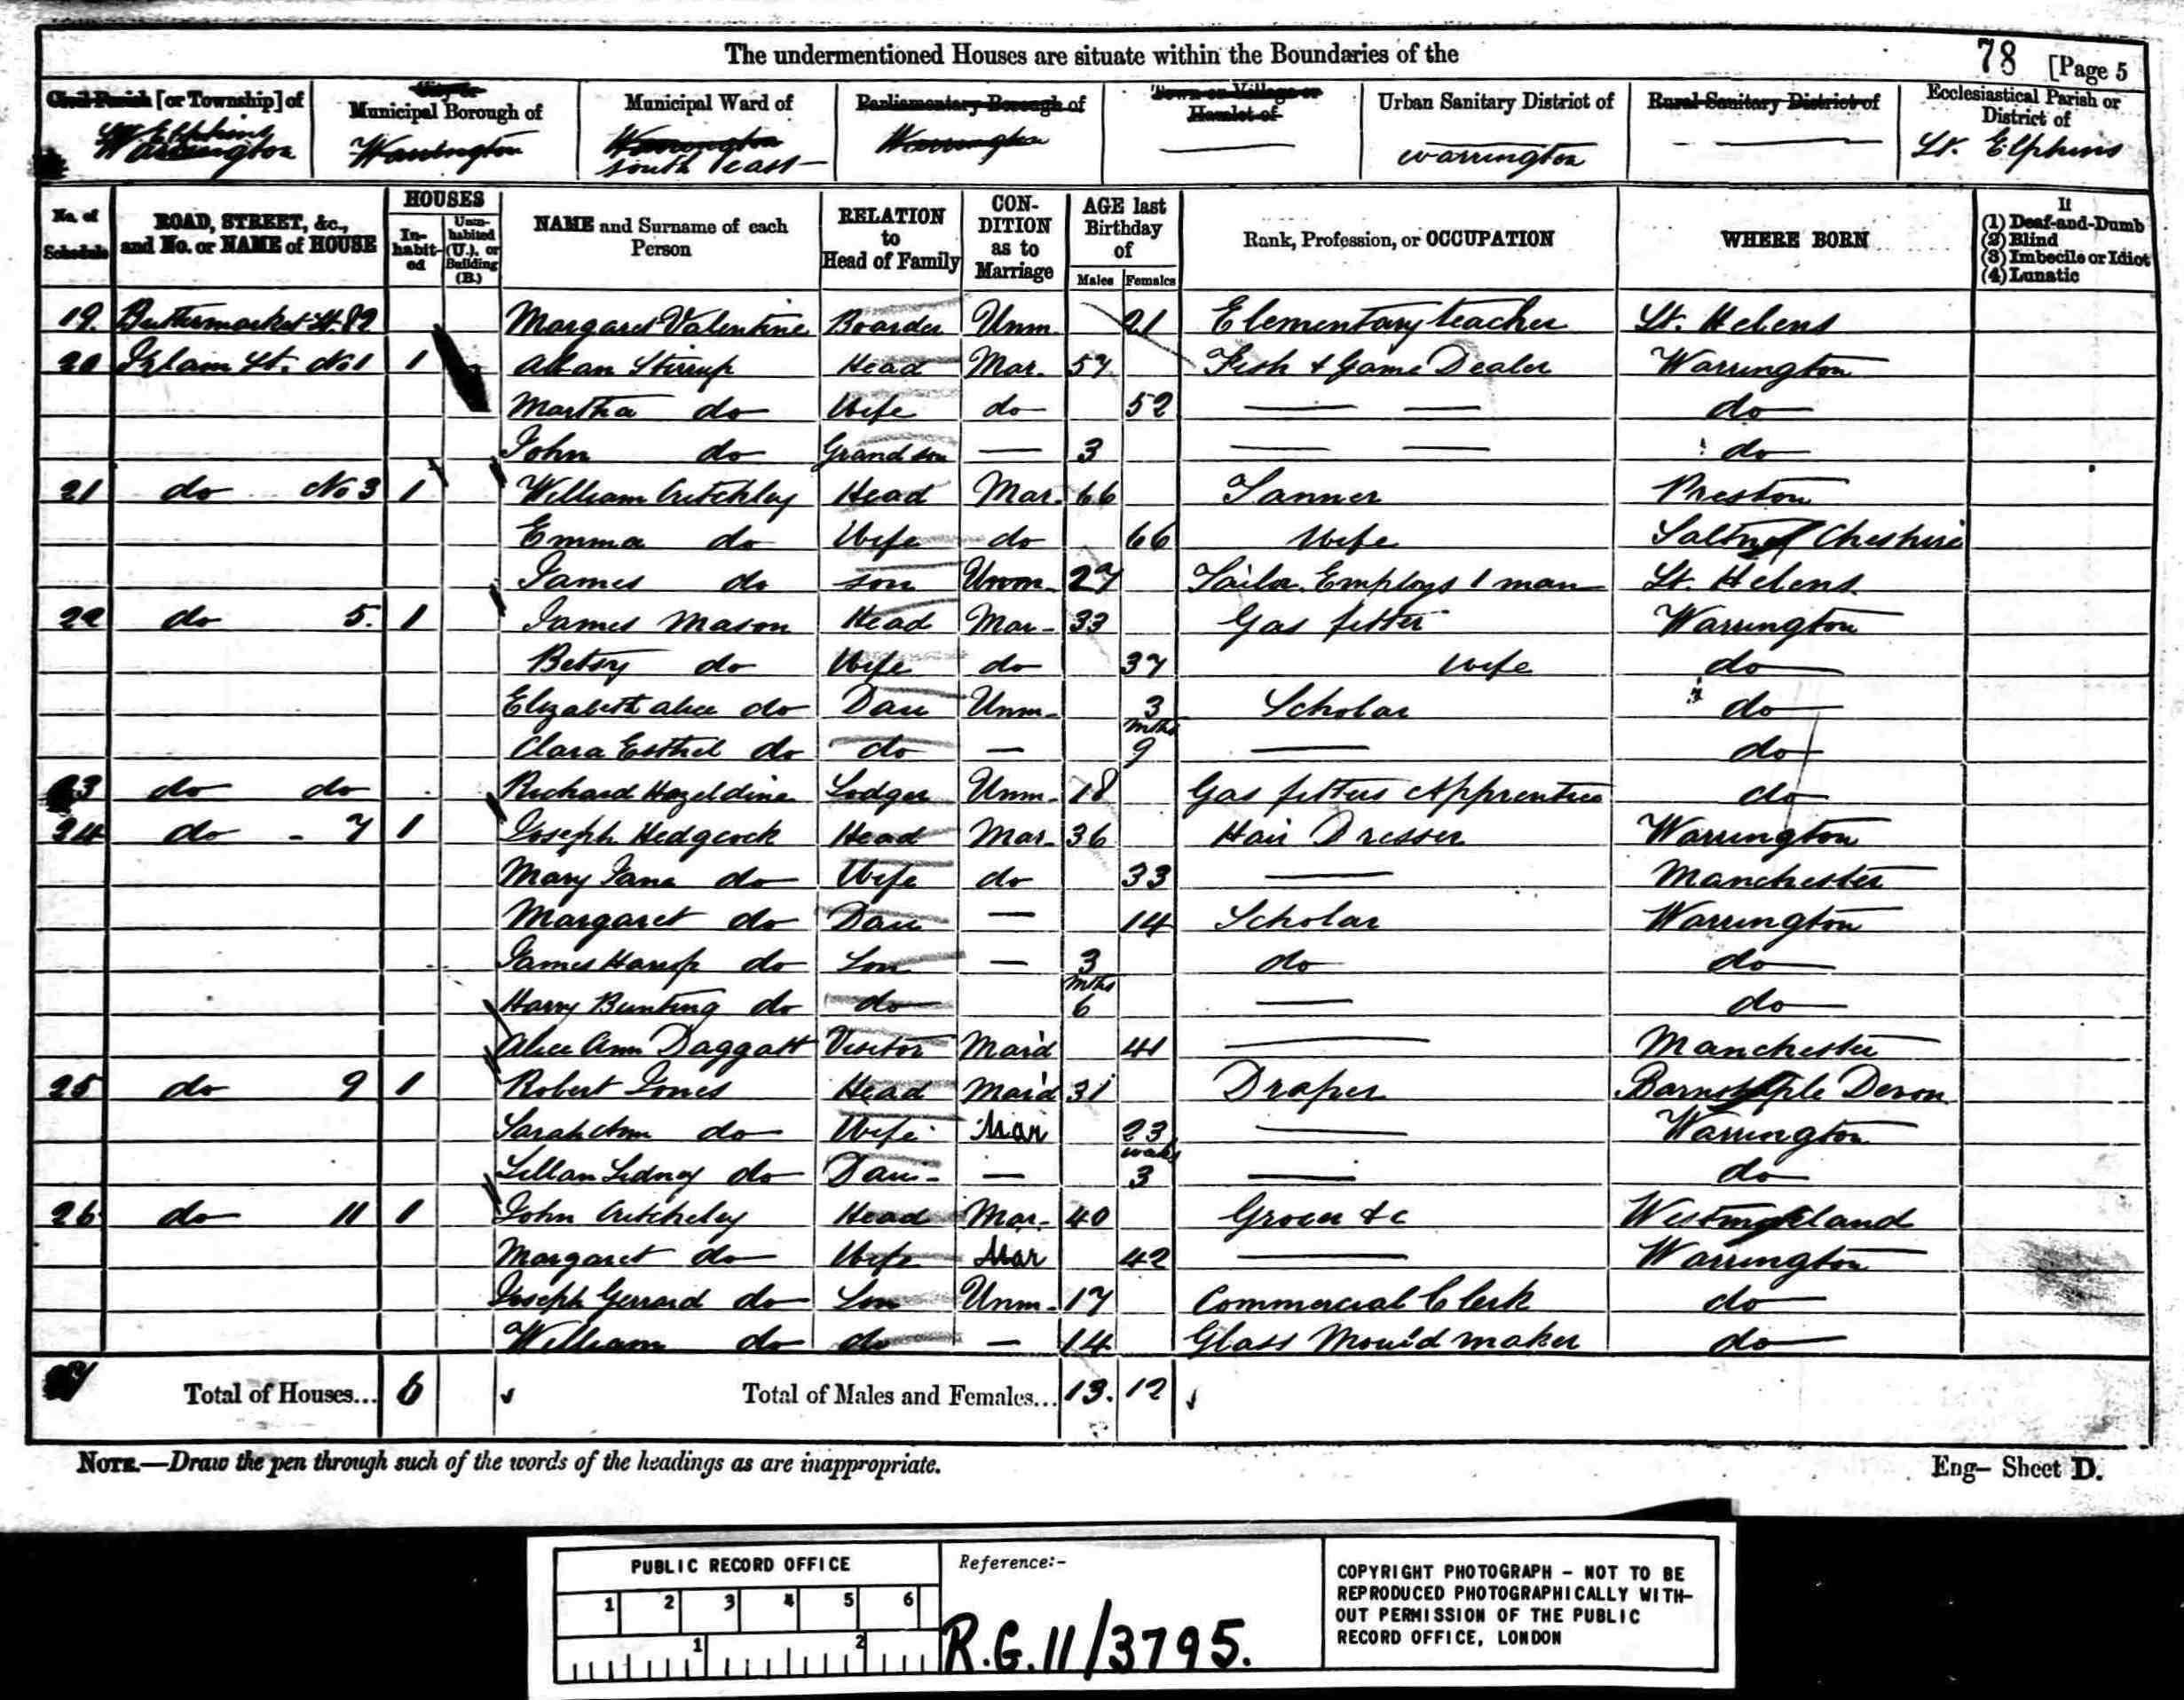 The undermentioned Houses are situate within the Boundaries of the 78 [Page 5
Civil Parish [or Township] of City or Municipal Borough of Municipal Ward of Parliamentary Borough of Town or Village or Hamlet of Urban Sanitary District of Rural Sanitary District of Ecclesiastical Parish or District of
St Elphins Warrington Warrington Warrington south east Warrington — warrington — St. Elphins
No. of Schedule ROAD, STREET, &c., and No. or NAME of HOUSE HOUSES In-habit-ed Unin-habited (U.), or Building (B.) NAME and Surname of each Person RELATION to Head of Family CON-DITION as to Marriage AGE last Birthday of Males Females Rank, Profession, or OCCUPATION WHERE BORN If (1) Deaf-and-Dumb (2) Blind (3) Imbecile or Idiot (4) Lunatic
19. Buttermarket St. 82 Margaret Valentine Boarder Unm 21 Elementary teacher St. Helens
20 St. No 1 1 Alan Stirrup Head Mar. 57 Fish & Game Dealer Warrington
Martha do Wife do 52 — — do
John do Grandson — 3 — — do
21 do No 3 1 William Critchley Head Mar. 66 Tanner Preston
Emma do Wife do 66 Wife Cheshire
James do son Unm. 27 Tailor. Employs 1 man St. Helens
22 do 5. 1 James Mason Head Mar- 33 Gas fitter Warrington
Betsy do Wife do 37 Wife do
Elizabeth alice do Dau Unm- 3 Scholar do
Clara Esthel do do — mths 9 — do
23 do do Richard Hazeldine Lodger Unm- 18 Gas fitters Apprentice do
24 do - 7 1 Joseph Hedgcock Head Mar- 36 Hair Dresser Warrington
Mary Jane do Wife do 33 — Manchester
Margaret do Dau — 14 Scholar Warrington
James Harrop do Son — 3 do do
Harry Bunting do do mths 6 — do
Alice Ann Daggatt Visitor Mar'd 41 — Manchester
25 do 9 1 Robert Jones Head Mar'd 31 Draper Barnstaple Devon
Sarah Ann do Wife Mar 23 — Warrington
Lillan Sidney do Dau- — weeks 3 — do
26 do 11 1 John Critcheley Head Mar- 40 Grocer &c Westmorland
Margaret do Wife Mar 42 — Warrington
Joseph Gerrard do Son Unm- 17 Commercial Clerk do
William do do — 14 Glass Mould maker do
Total of Houses... 6 Total of Males and Females... 13. 12
NOTE.—Draw the pen through such of the words of the headings as are inappropriate. Eng— Sheet D.
PUBLIC RECORD OFFICE
1 2 3 4 5 6
1 2
Reference:-
R.G. 11/3795.
COPYRIGHT PHOTOGRAPH – NOT TO BE
REPRODUCED PHOTOGRAPHICALLY WITH-
OUT PERMISSION OF THE PUBLIC
RECORD OFFICE, LONDON